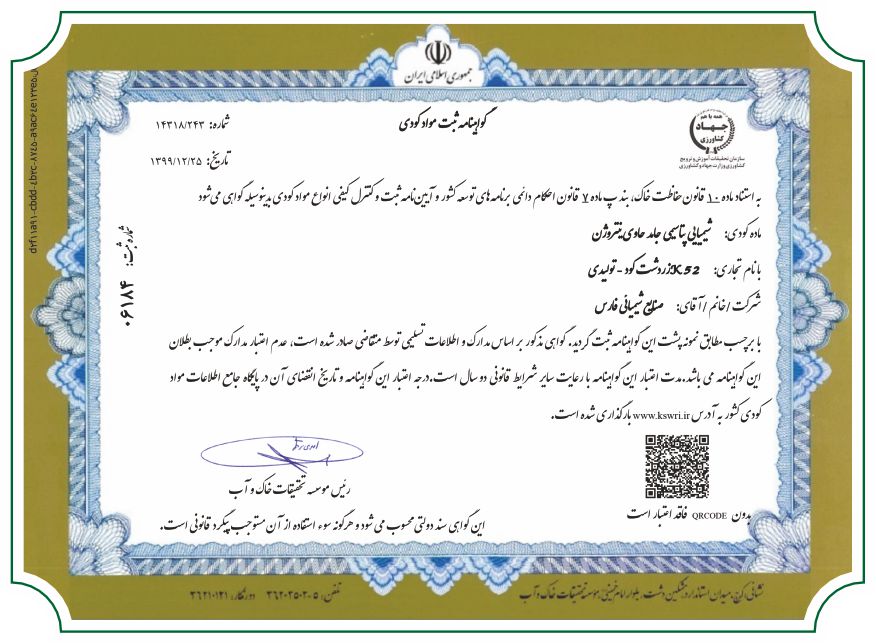 جمهوری اسلامی ایران
همه با هم
جهاد
کشاورزی
سازمان تحقیقات آموزش و ترویج
کشاورزی وزارت جهاد کشاورزی
گواهینامه ثبت مواد کودی
شماره: ۱۴۳۱۸/۲۴۳
تاریخ: ۱۳۹۹/۱۲/۲۵
به استناد ماده ۱۰ قانون حفاظت خاک، بند پ ماده ۷ قانون احکام دائمی برنامه های توسعه کشور و آیین نامه ثبت و کنترل کیفی انواع مواد کودی بدینوسیله گواهی می شود
ماده کودی: شیمیایی پتاسیمی جامد حاوی نیتروژن
با نام تجاری: K52:زردشت کود - تولیدی
شرکت / خانم / آقای: صنایع شیمیائی فارس
با برچسب مطابق نمونه پشت این گواهینامه ثبت گردید. گواهی مذکور بر اساس مدارک و اطلاعات تسلیمی توسط متقاضی صادر شده است، عدم اعتبار مدارک موجب بطلان
این گواهینامه می باشد.مدت اعتبار این گواهینامه با رعایت سایر شرایط قانونی دو سال است.درجه اعتبار این گواهینامه و تاریخ انقضای آن در پایگاه جامع اطلاعات مواد
کودی کشور به آدرس www.kswri.ir بارگذاری شده است.
شماره ثبت: ۰۶۱۸۴
رئیس موسسه تحقیقات خاک و آب
بدون QRCODE فاقد اعتبار است
این گواهی سند دولتی محسوب می شود و هرگونه سوء استفاده از آن مستوجب پیگرد قانونی است.
نشانی: کرج، میدان استاندارد، مشکین دشت، بلوار امام خمینی، موسسه تحقیقات خاک و آب
تلفن: ۵-۳۶۲۰۳۵۰۲ دورنگار: ۳۶۲۱۰۱۲۱